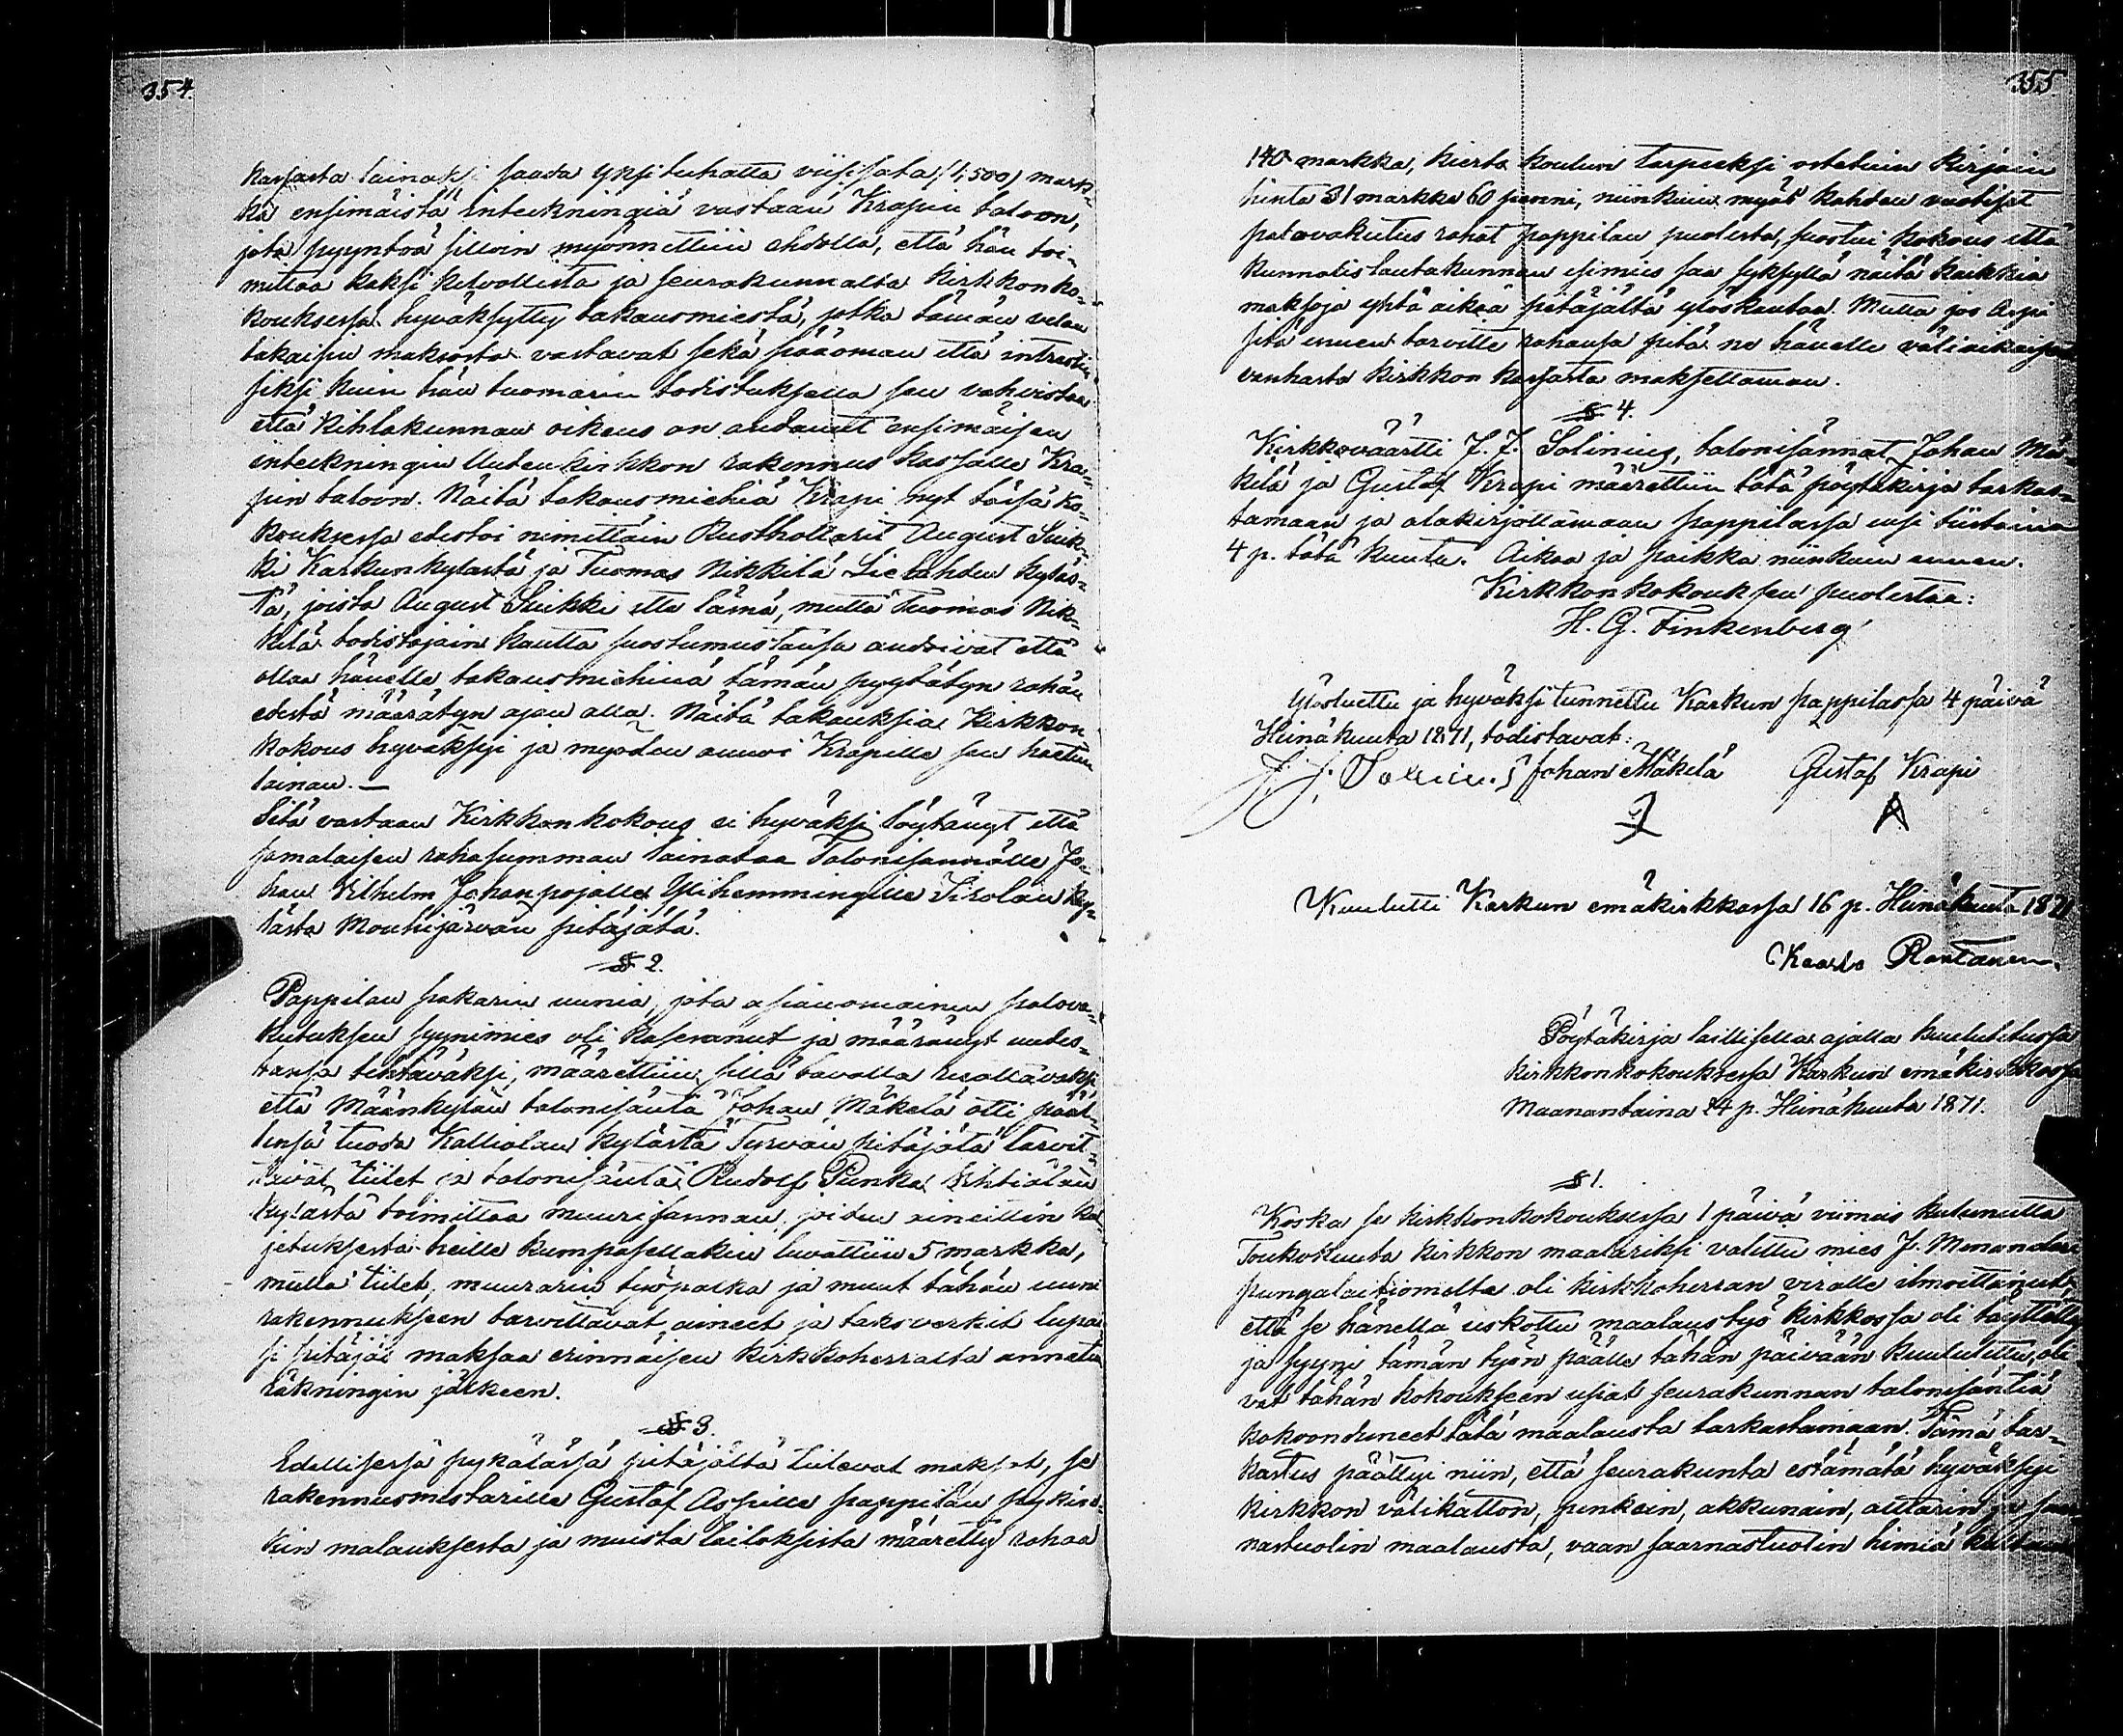 354.
kassasta lainaksi saada yksituhatta viisisataa (1,500) mark-
ka ensimäistä inteckningiä vastaan Krapin taloon,
jota pyyntöä silloin myönnettiin ehdolla, että hän toi-
mittaa kaksi kelvollista ja seurakunnalta kirkkonko-
kouksessa hyväksytty takausmiestä, jotka tämän velan
takaisin maksosta vastavat sekä pääoman että intressin
siksi kuin hän tuomarin todistuksella sen vahvistaa
että Kihlakunnan oikeus on andanut ensimäisen
inteckningin Uuden kirkkon rakennus kassalle Kra-
pin taloon. Näitä takausmiehiä Krapi nyt tässä ko-
kouksessa edestoi nimittäin Rusthollarit August Suik-
ki Karkunkylästä ja Tuomas Nikkilä Lielahden kyläs-
tä, joista August Suikki itte lämä, mutta Tuomas Nik-
kilä todistajain kautta suostumustansa andoivat että
ollaa hänelle takausmiehinä tämän pyytätyn rahan
edestä määrätyn ajan alla. Näitä takauksia Kirkkon
kokous hyväksyi ja myöden annoi Krapille sen haetun
lainan. —
Sitä vastaan Kirkkonkokous ei hyväksi löytänyt että
samalaisen rahasumman lainataa Talonisannälle Jo-
han Vilhelm Johanpojalle Ylihemmingille Tirolan ky-
lästä Mouhijärvan pitäjätä.
§ 2.
Pappilan pakarin uunia, jota asianomainen palova-
kutuksen syynimies oli kasseranut ja määränyt uudes-
tansa tehtäväksi, määrettiin sillä tavalla
että Määnkylän talonisäntä Johan Mäkelä otti pääl-
lensä tuoda Kalliolan kylästä Tyrvän pitäjätä tarvit-
tavat tiilet ja talonisäntä Rudolf Punka
kylästä toimittaa muurisannan, joiden aineittin kul-
jetuksesta heille kumpasellakin luvattiin 5 markka,
mutta tiilet, muurarin työpalka ja muut tähän uuni
rakennukseen tarvittavat aineet ja taksverkit lupai-
si pitäjäs maksaa erinnäisen kirkkoherralta annetun
räkningin jälkeen.
§ 3.
Edellisessä pykälässä pitäjältä tulevat maksot, se
rakennusmestarille Gustaf Aspille pappilan
kin malauksesta ja muista laitoksista määretty rahaa
355.
140 markka, kierto koulun tarpeeksi ostetuin kirjain
hinta 31 markka 60 penni, niinkuin myös kahden vuotiset
palovakutus rahat pappilan puolesta, suostui kokous että
kunnalislautakunnan esimies saa syksyllä näitä kaikkia
maksoja yhtä aikaa pitäjältä ylöskantaa. Mutta jos Aspi
sitä ennen tarvitte rahansa pitä ne hänelle väliaikaisen
vanhasta kirkkon kassasta maksettaman.
§ 4.
Kirkkoväärtti J. J. Salinius, talonisännat, Johan Mä-
kelä ja Gustaf Krapi määrettiin tätä pöytäkirja tarkas-
tamaan ja alakirjottamaan pappilassa ensi tiistaina
4 p. tätä kuuta. Aikaa ja paikka niinkuin ennen.
Kirkkonkokouksen puolestaa:
H. G. Finkenberg
Ylösluettu ja hyväksi tunnettu Karkun pappilassa 4 päivä
Heinäkuuta 1871, todistavat:
J. J. Salinius Johan Mäkelä Gustaf Krapi
Kuulutti Karkun emäkirkkossa 16 p. Heinäkuuta 1871
Kaarlo Rantanen.
Pöytäkirja laillisella ajalla kuulutetussa
kirkkonkokouksessa Karkun emäkirkkossa
Maanantaina 24 p. Heinäkuuta 1871.
§ 1.
Koska se kirkkonkokouksessa 1 päivä viimeis kulunutta
Toukokuuta kirkkon maalariksi valittu mies J. Menander
Pungalaitiomelta oli kirkkoherran viralle ilmoittanut,
että se hänellä uskottu maalaustyö kirkkossa oli täytetty
ja syyni tämän työn päälle tähän päivään kuulutettu, oli
vat tähän kokoukseen usiat seurakunnan talonisäntiä
kokoonduneet tätä maalausta tarkastamaan. Tämä tar-
kastus päättyi niin, että seurakunta estämätä hyväksyi
kirkkon välikatton, penkein, akkunain, alttarin ja saar-
nastuolin maalausta, vaan saarnastuolin himiä